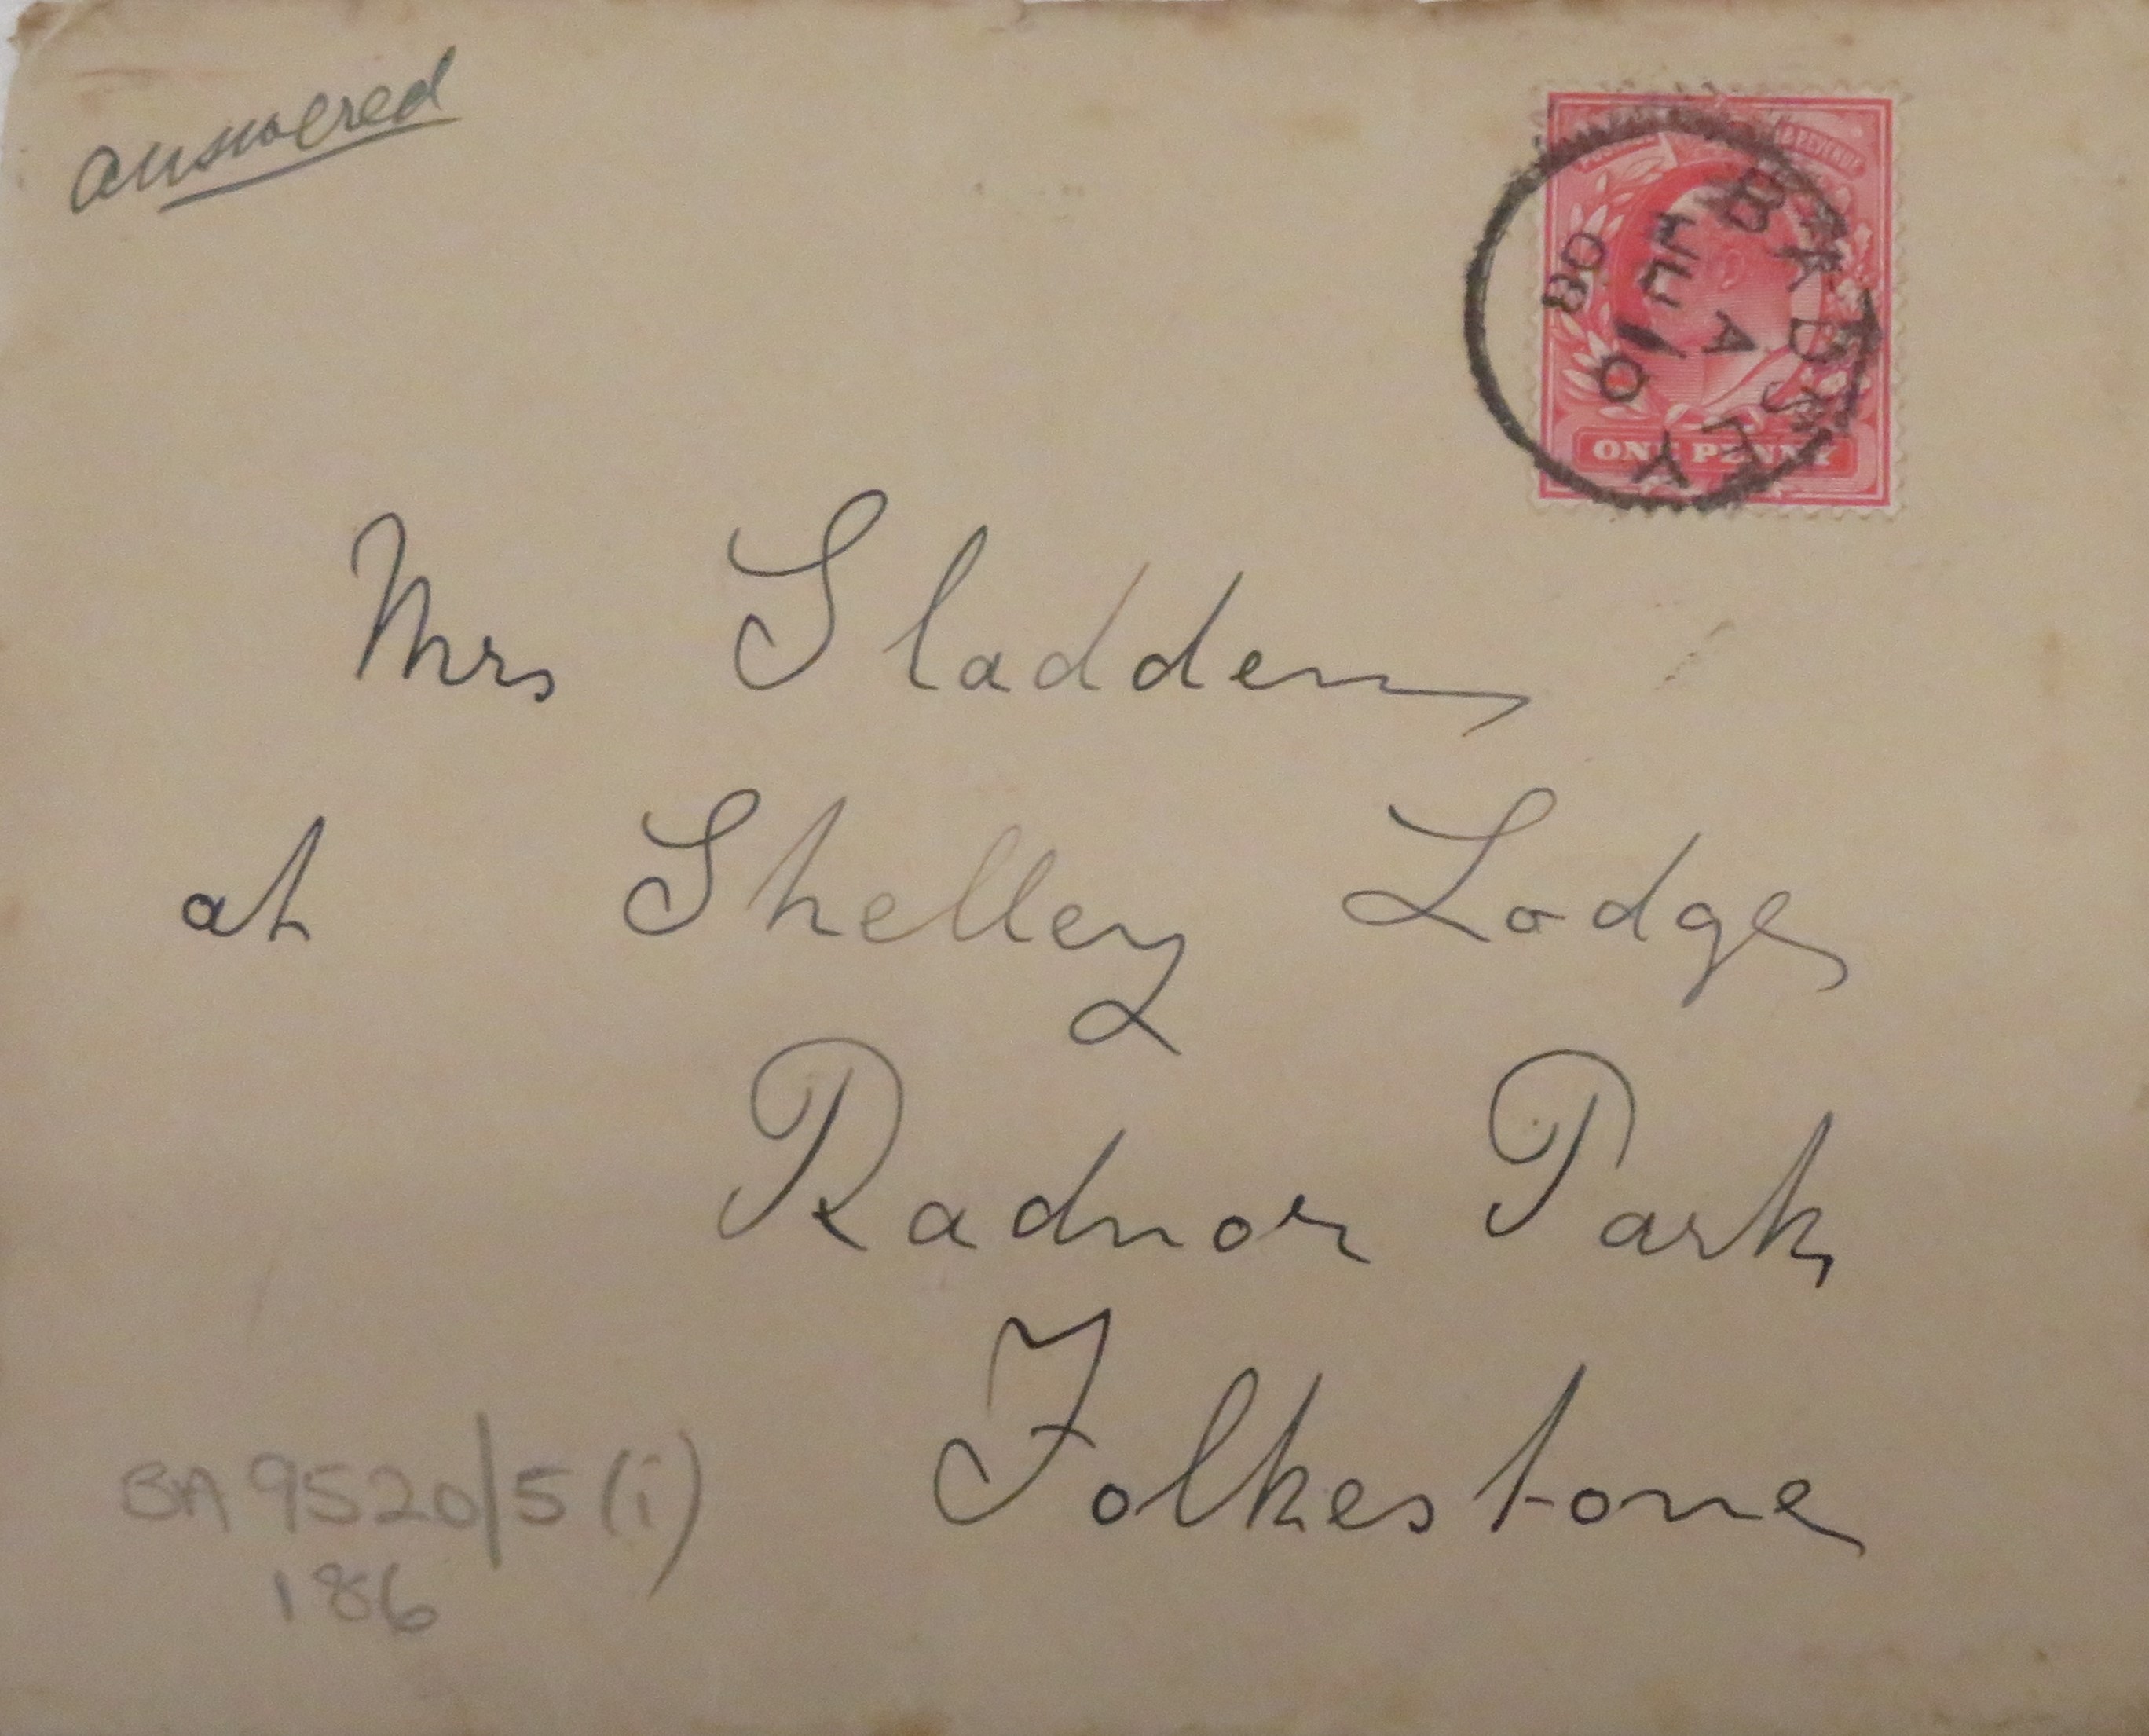 answered
BADSEY
A
FE 10
08
ONE PENNY
Mrs Sladden
at Shelley Lodge
Radnor Park
Folkestone
BA 9520/5 (i)
186